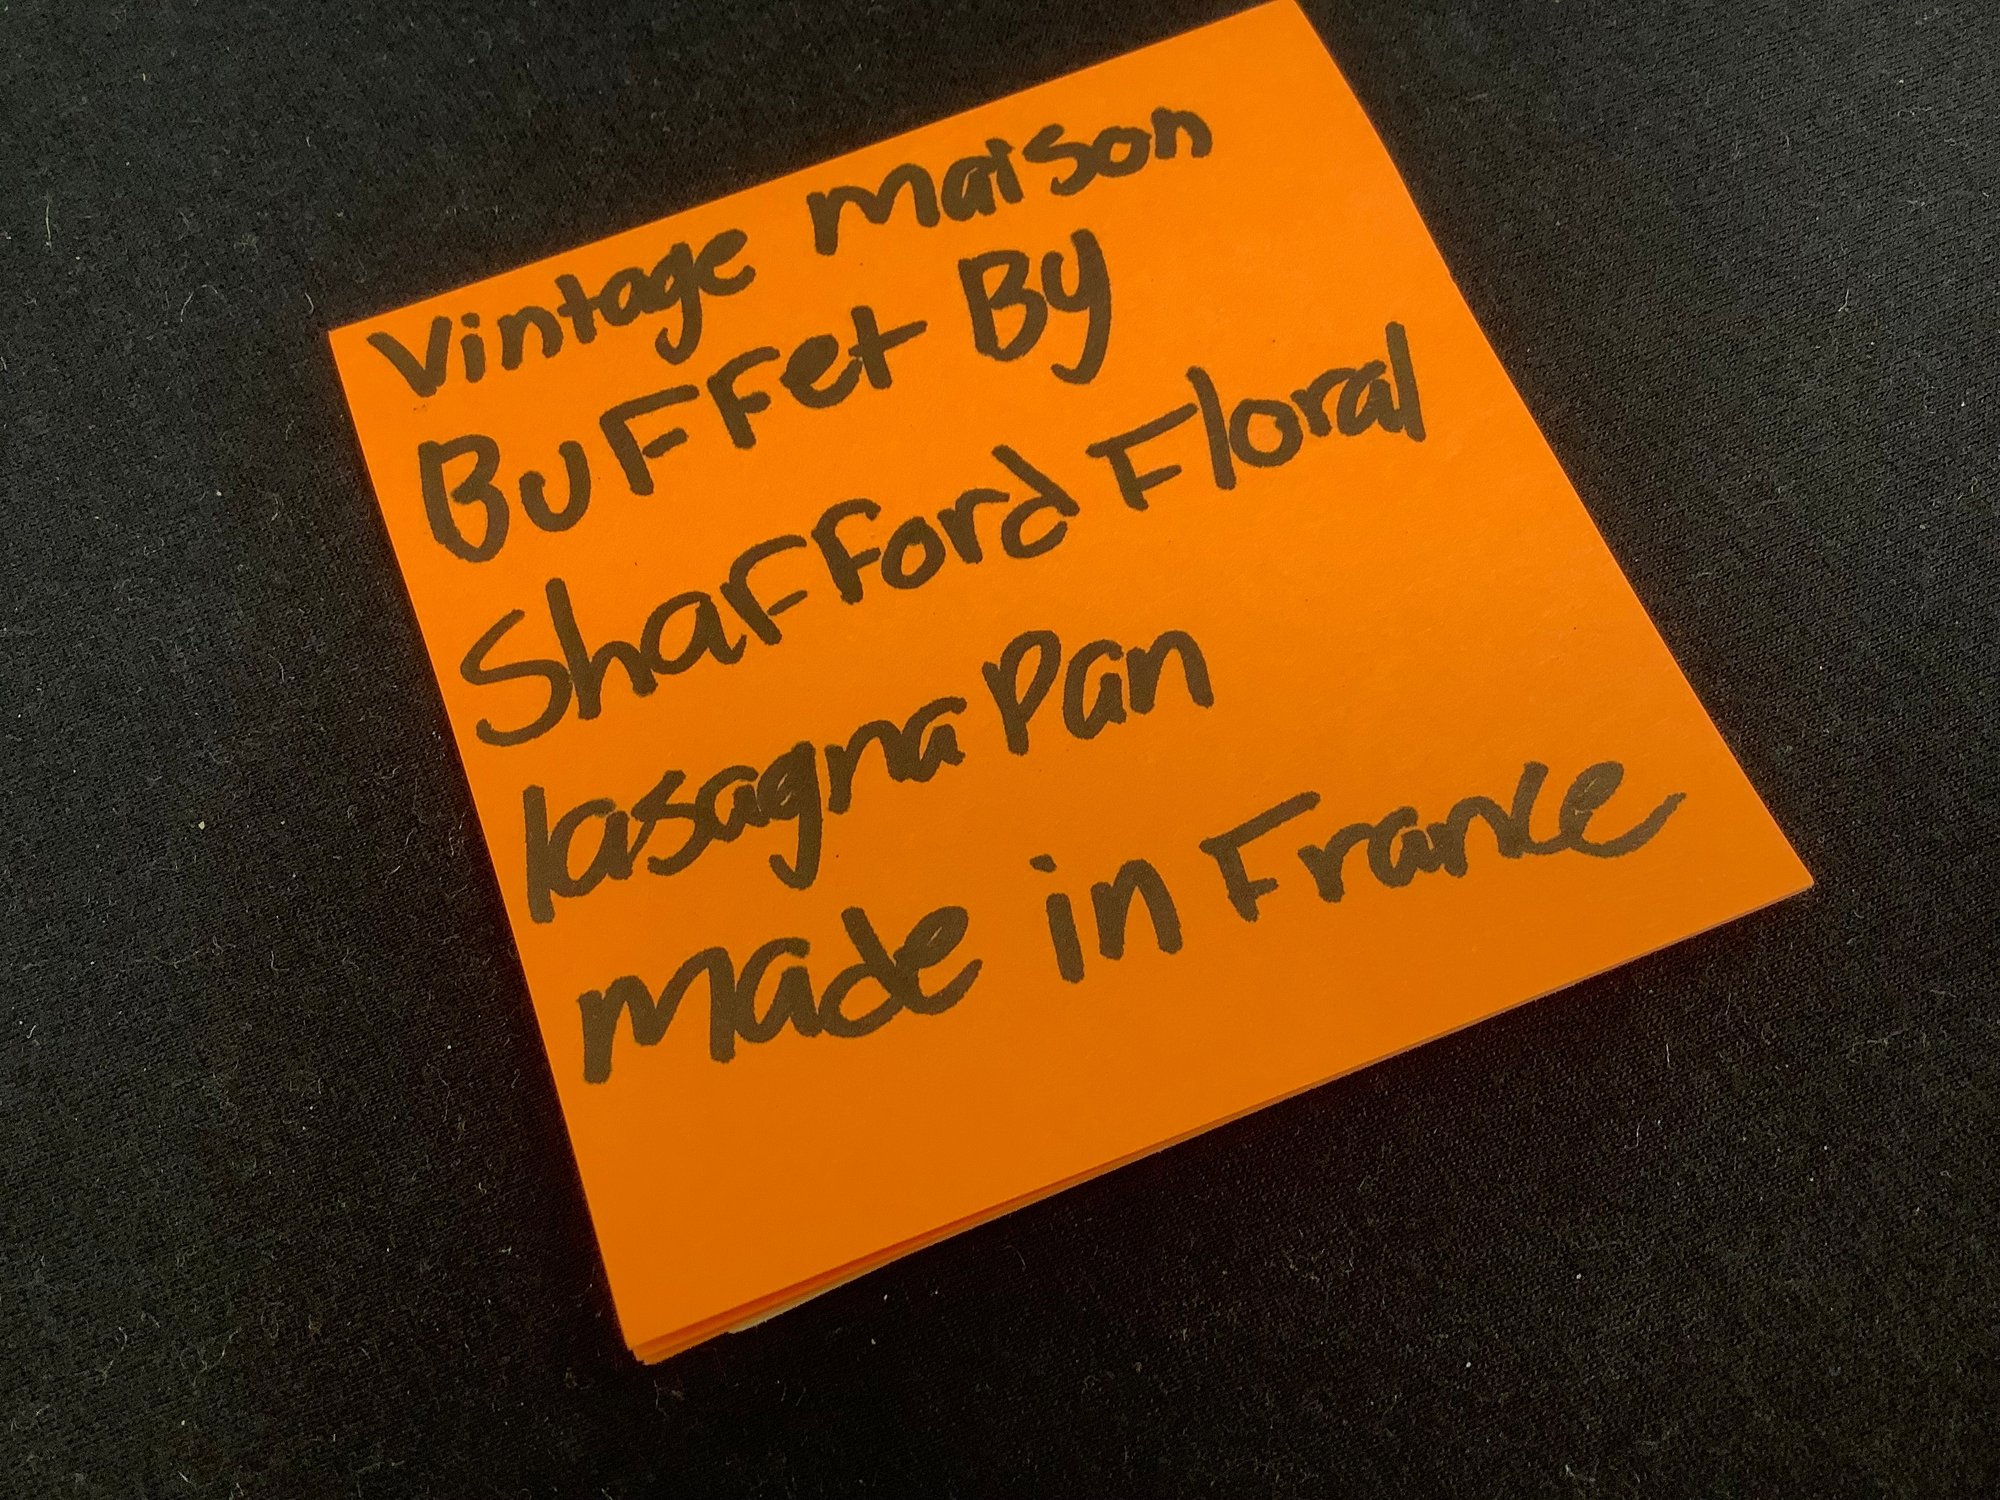 Vintage Maison
BuFFet By
ShaFFord Floral
lasagna Pan
made in France